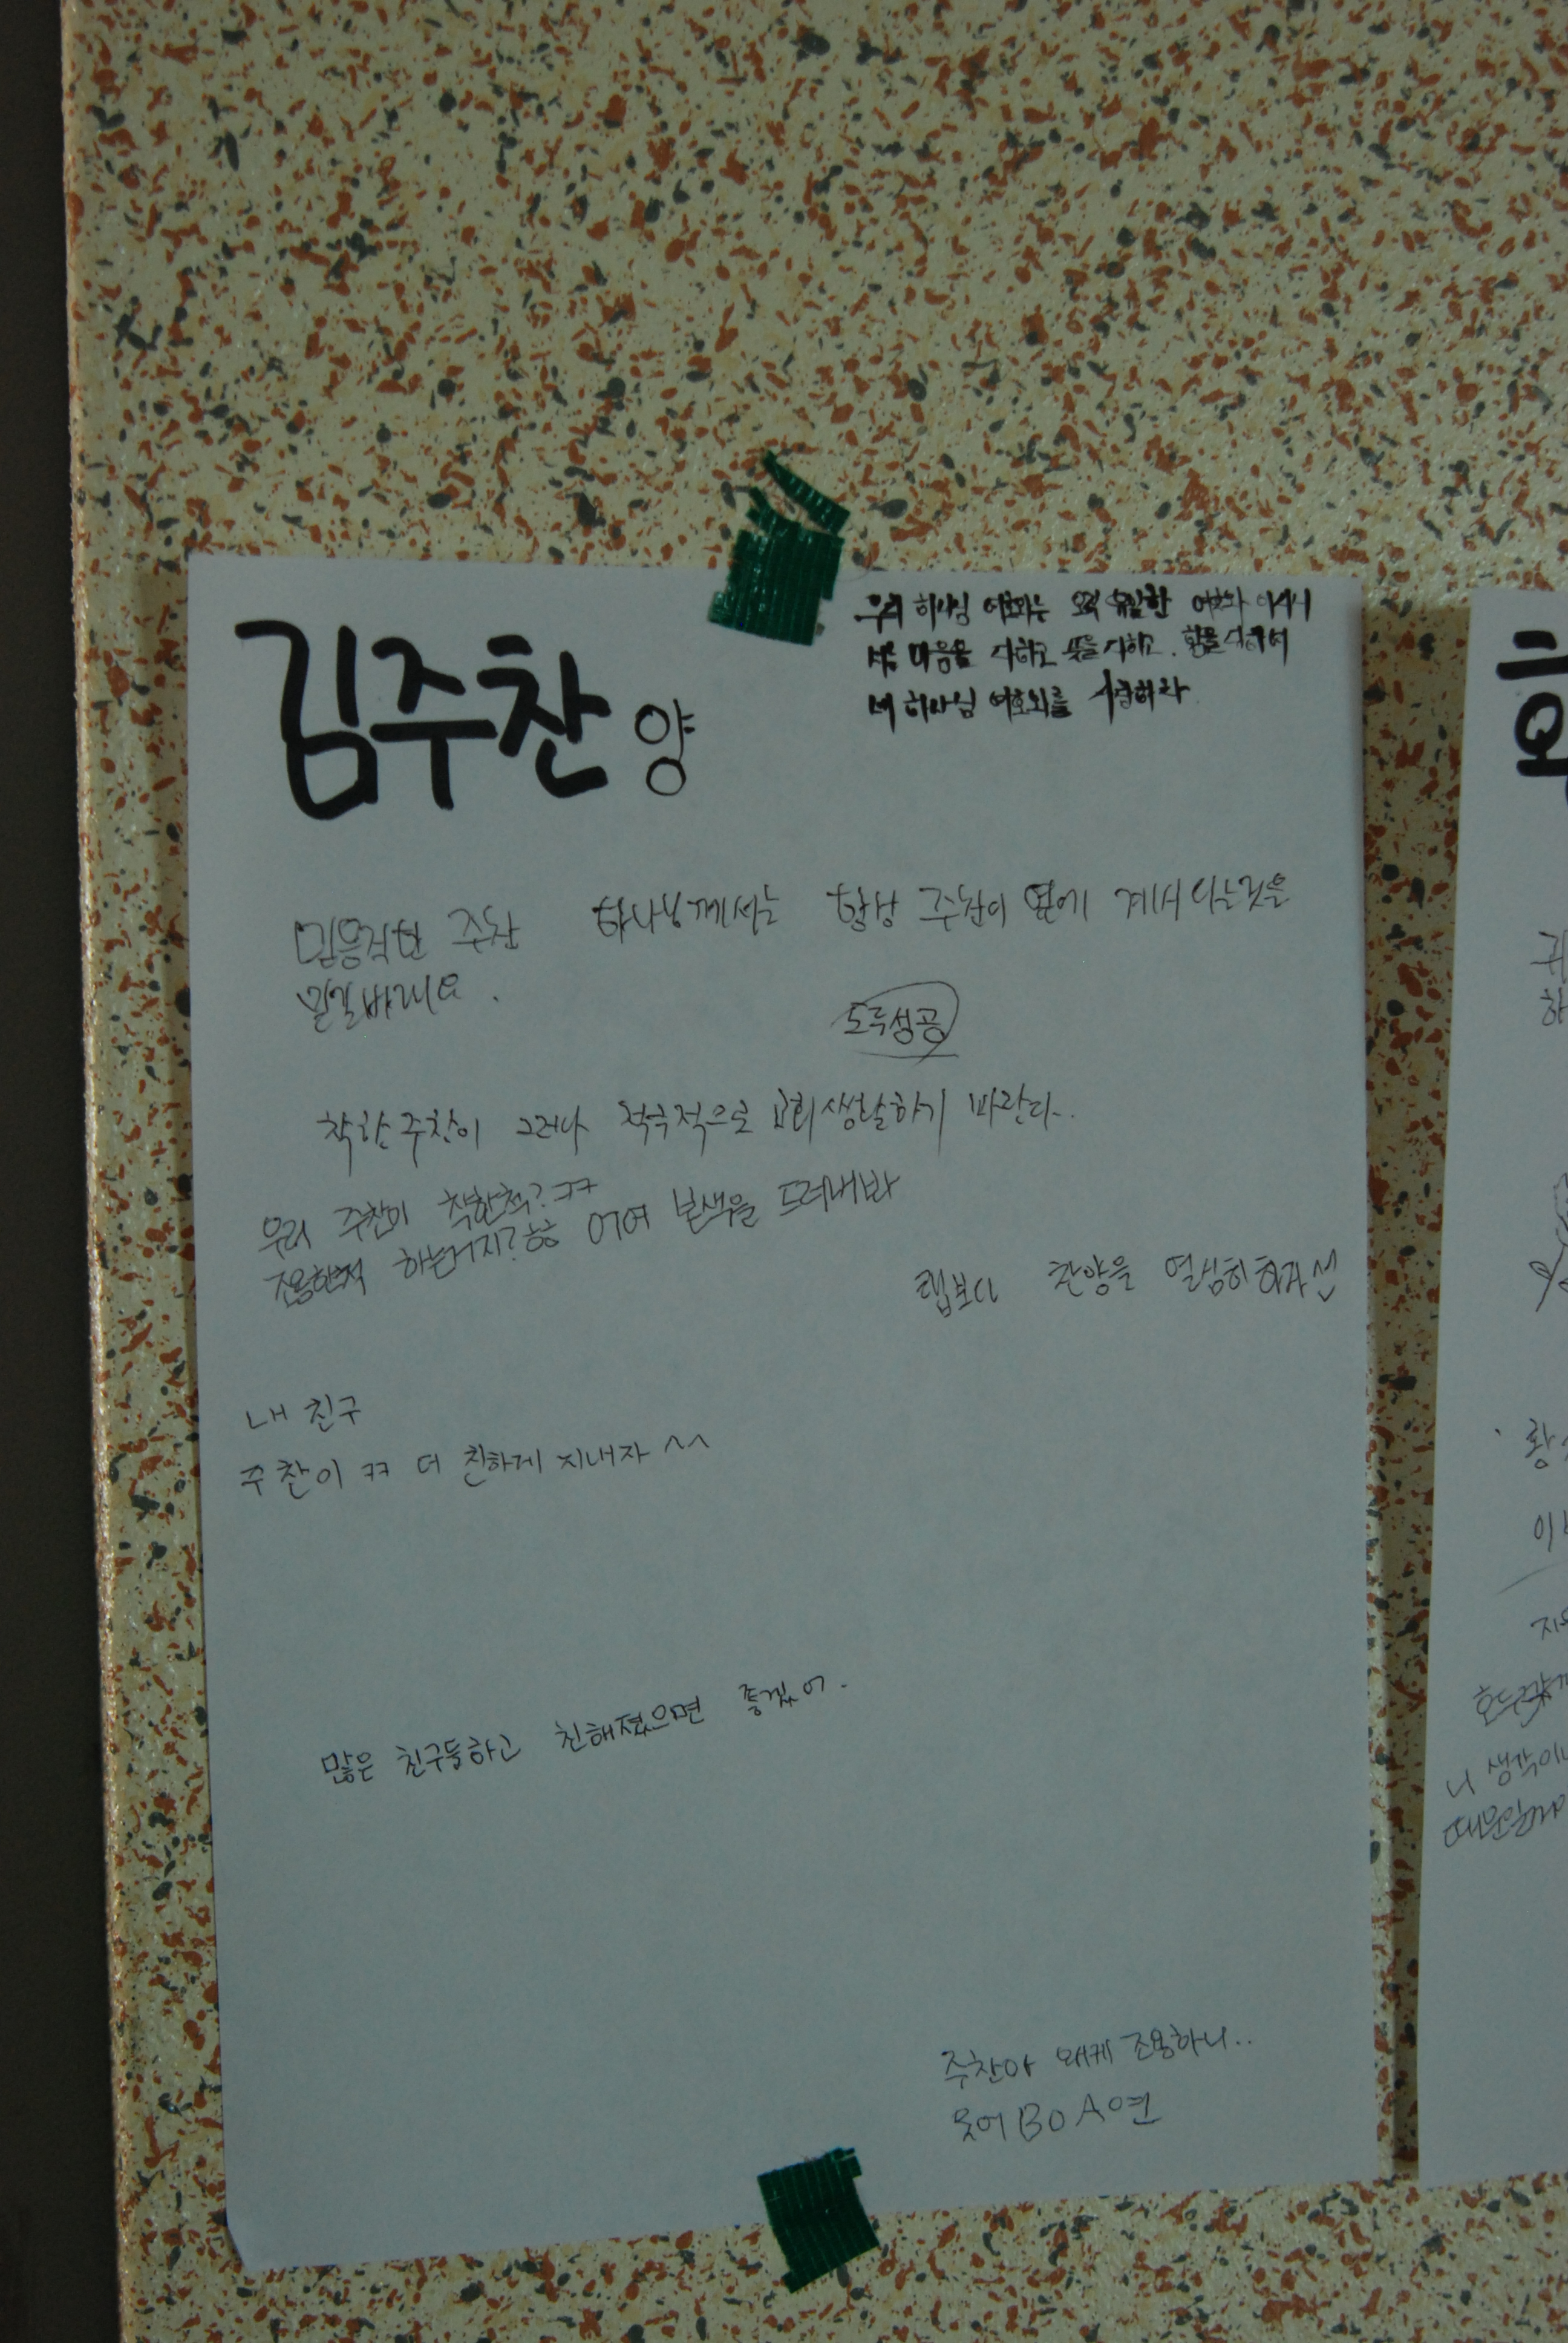 김주찬 양
우리 하나님 여호와는 오직 유일한 여호와 이시니
너는 마음을 다하고 뜻을 다하고 힘을 다하여
네 하나님 여호와를 사랑하라
믿음직한 주찬 하나님께서는 항상 주찬이 옆에 계시다는것을
믿길바래요.
도루성공
착한 주찬이 그러나 적극적으로 교회생활하기 바란다..
우리 주찬이 착한척? ㅋㅋ
조용한척 하는거지? ㅎㅎ 어여 본색을 드러내봐
랩보다 찬양을 열심히하자
내 친구
주찬이 ㅋㅋ 더 친하게 지내자 ^^
많은 친구들하고 친해졌으면 좋겠어.
주찬아 왜케 조용하니..
웃어BoA연
황
하
니 생각이